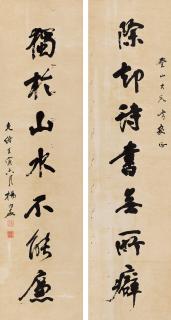 登山大兄雅正
除却詩書無所癖
獨於山水不能廉
光緒壬寅六月 楊